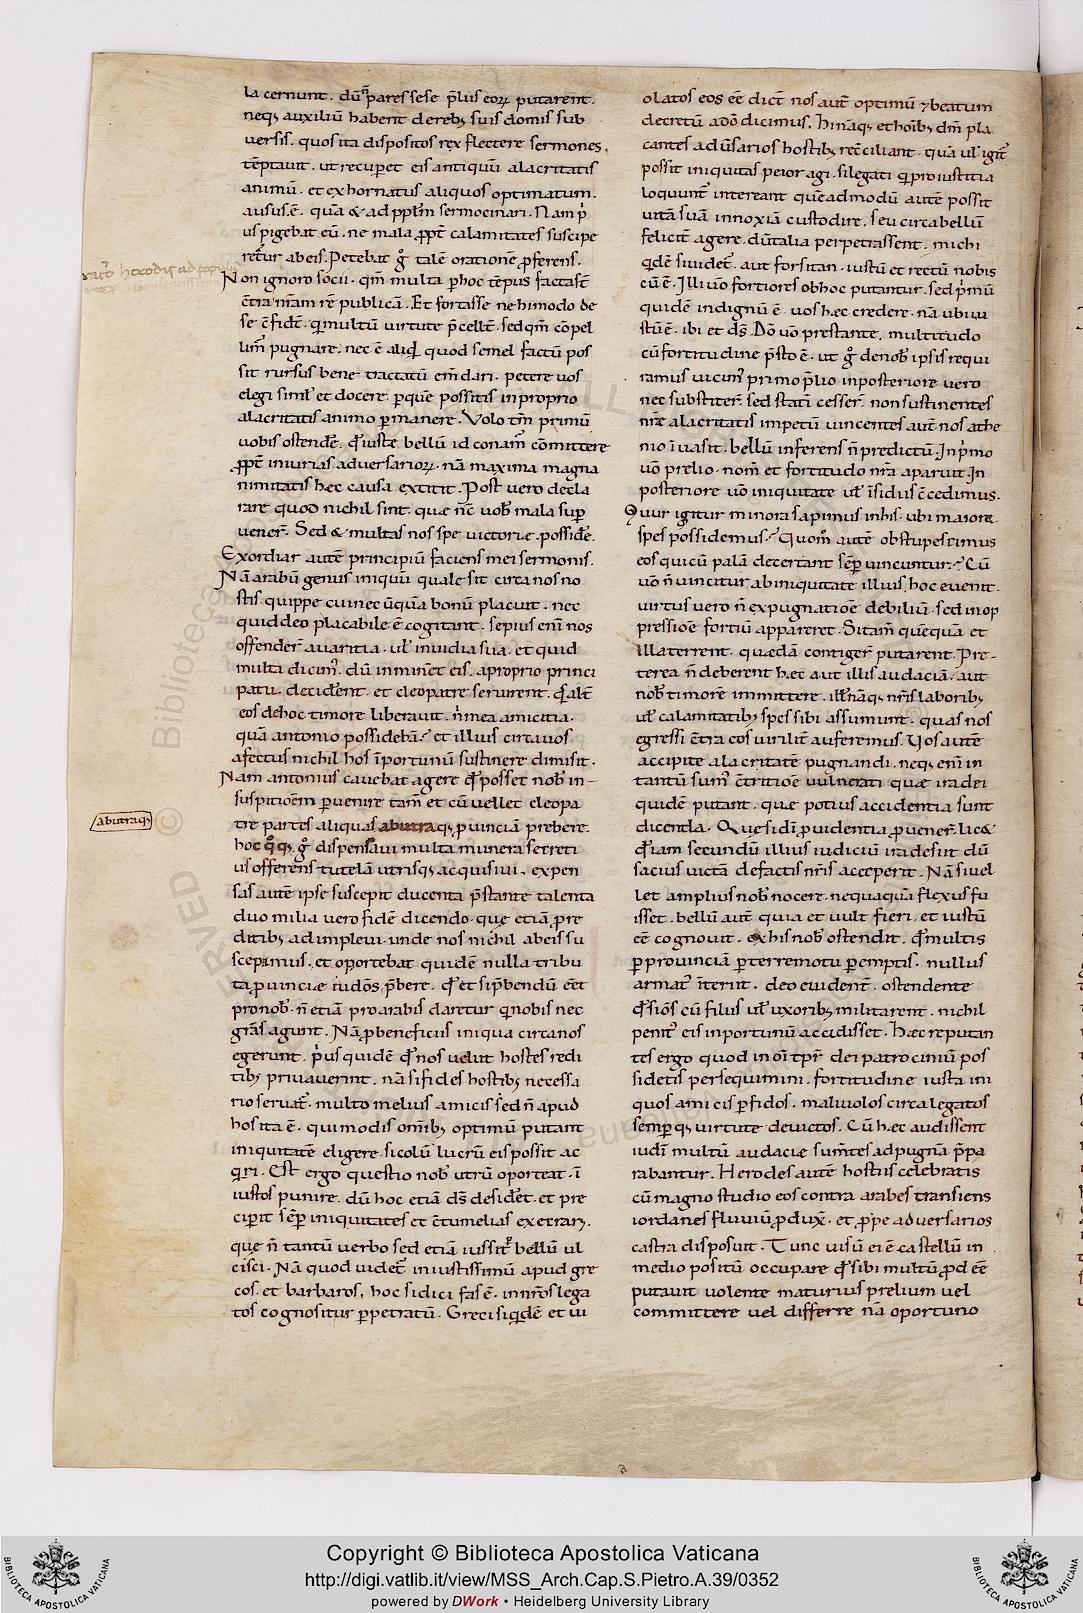 la cernunt. dū ñ pares sese p̄lus eoꝝ putarent.
neqꝫ auxiliū haberent de rebꝫ suis domis sub
versis. quos ita dispositos rex flectere sermones.
tēptavit. ut recuꝑet eis antiquū alacritatis
animū. et exhornatus aliquos optimatum.
ausus.ē. quā & ad pplm̄ sermocinari. Nam p̄
us pigebat eū. ne mala ꝓpt̄ calamitates suscipe
ret̄ur ab eis. Petebat g̊ talē orationē ꝓferens.
Non ignoro socii. qm̄ multa ꝑ hoc tēpus facta sr̄
cōtra nr̄am rē publicā. Et fortasse ne himodo de
se cōfidēt. qui multū virtute p̄cellēt. sed qm̄ cōpel
lim̄ pugnare. nec ē aliqd̄ quod semel factū pos
sit rursus bene tractatū em̄dari. petere vos
elegi simul̄ et docere. ꝑque possitis in proprio
alacritatis animo ꝑmanere. Volo tm̄ primū
vobis ostendē. qd̄ iuste bellū id conam̄ cōmittere
ꝓpt̄ iniurias adversarioꝝ. nā maxima magna
nimitatis hęc causa extitit. Post vero decla
rare quod nichil sint. quæ nc̄ vob̄ mala suꝑ
vener̄. Sed & multas nos spe victoriæ possidē.
Exordiar autē principiū faciens mei sermonis.
Nā arabū genus iniquū quale sit circa nos no
stis. quippe cui nec ūquā bonū placuit. nec
quid deo placabile ē cogitant. sepius enī nos
offender̄ avaritia. ul̄ invidia sua. et quid
multa dicim̄. dū inminēt eis. a proprio princi
patu. deciderent. et cleopatre servirent. qs̄ alt̄
eos de hoc timore liberavit. n̄ mea amicitia.
quā antonio possidebā. et illius circa vos
afectus nichil hos inportunū sustinere dimisit.
Nam antonius cavebat agere qd̄ posset nob̄ in-
suspitioēm ꝑvenire. tam̄ et cū vellet cleopa
tre partes aliquas abutraqꝫ ꝓvinciā prebere.
hoc q̊qꝫ. g̊ dispensavi multa munera secreti
us offerens tutelā utrisqꝫ acquisivi. expen
sas autē ipse suscepi ducenta p̄stante talenta
duo milia vero fidē dicendo. quę etiā ꝓ re
ditibꝫ adimplevi. unde nos nichil ab eis su
scepimus. et oportebat quidē nulla tribu
ta ꝓvinciæ iudōs p̄bere. qd̄ et stip̄bendū eēt
pro nob̄. n̄ etiā pro arabis daretur q nobis nec
gr̄as agunt. Nā ꝓ beneficiis iniqua circa nos
egerunt. p̄us quidē qd̄ nos velut hostes redi
tibꝫ privaverint. nā si fides hostibꝫ necessa
rio servat̄. multo melius amicis sed n̄ apud
hos ita ē. qui modis omībꝫ optimū putant
iniquitatē eligere. si colū lucrū eis possit ac
qiri. Est ergo questio nob̄ utrū oporteat. ī
iustos punire. dū hoc etiā ds̄ desideret. et pre
ciperit sēꝑ iniquitates et cōtumelias execrari.
que n̄ tantū verbo sed etiā iussit̄ bellū ul
cisci. Nā quod videt̄ iniustissimū apud gre
cos. et barbaros. hoc si dici fas ē. in nr̄os lega
tos cognoscitur ꝑpetratū. Greci siqdē et vi
abutraqꝫ
olatos eos eē dict̄ nos aut̄ optimū ⁊ beatum
decretū a dō dicimus. Hi nāqꝫ et hoībꝫ dm̄ pla
cantes adv̄sarios hostibꝫ rec̄ciliant. quā ul̄ igit̄
possit iniquitas peior agi. si legati q pro iustitia
loquunt̄ intereant quēadmodū autē possit
vitā suā innoxiā custodire. seu circa bellū
feliciter agere. dū talia perpetrassent. michi
qdē si videt̄. aut forsitan. iustū et rectū nobis
cū ē. Illi vō fortiores ob hoc putantur. sed p̄mū
quidē indignū ē. vos hæc credere. nā ubi iu
stū ē. ibi et ds̄. Dō vō prestante. multitudo
cū fortitudine p̄sto ē. ut g̊ de nob̄ ipsis requi
ramus vicim̄ primo p̄lio in posteriore vero
nec substiter̄ sed statī cesser̄. non sustinentes
nr̄e alacritatis impetū vincentes aut̄ nos athe
nio īvasit. bellū inferens n̄ predictū. In p̄mo
vō prelio. nom̄ et fortitudo nr̄a aparuit. In
posteriore vō iniquitate ul̄ īsidiis cēcedimus.
Quur igitur minora sapimus in his. ubi maiore
spes possidemus. Quom̄ autē obstupescimus
eos qui cū palā decertant sēꝑ vincuntur. Cū
vō n̄ vincitur ab iniquitate illius. hoc evenit.
virtus vero n̄ expugnatiōe debiliū. sed in op
pressiōe fortiū appareret. Si tam̄ quēquā et
illa terrent. quædā contiger̄ putarent. Pre-
terea n̄ deberent hæc aut illis audaciā. aut
nob̄ timorē immittere. illi nāqꝫ nr̄is laboribꝫ
ul̄ calamitatibꝫ spes sibi assumunt. quas nos
egressi cōtra eos virilit̄ auferemus. Vos autē
accipite alacritatē pugnandi. neqꝫ enī in
tantū sum̄ cōtritiōe vulnerati quæ ira dei
quidē putant. quæ potius accidentia sunt
dicenda. Que si dī ꝓvidentia ꝓvener̄. licet
qd̄ iam secundū illius iudiciū ira desiit dū
sacius victā de factis nr̄is acceperit. Nā si vel
let amplius nob̄ nocere. nequaquā flexus fu
isset. bellū autē quia et vult fieri. et iustū
eē cognovit. ex his nob̄ ostendit. qd̄ multis
ꝑ provinciā ꝑ terremotū ꝑemptis. nullus
armat̄ īterīit. deo evident̄. ostendente
qd̄ si ōs cū filiis ul̄ uxoribꝫ militarent. nichil
penit̄ eis inportunū accidisset. Hæc reputan
tes ergo quod in oī tp̄r̄ dei patrociniū pos
sidetis persequimini. fortitudine iusta ini
quos amicis ꝑfidos. malivolos circa legatos
semꝑqꝫ virtute devictos. Cū hæc audissent
iudī multū audaciæ sum̄tes ad pugnā p̄pa
rabantur. Herodes autē hostiis celebratis
cū magno studio eos contra arabes transiens
iordanes fluviū ꝓdux̄. et ꝓpe adversarios
castra disposuit. Tunc visū ei ē castellū in
medio positū occupare qd̄ sibi multū ꝓd eē
putavit volente maturius prelium vel
committere vel differre nā oportuno
Copyright © Biblioteca Apostolica Vaticana
http://digi.vatlib.it/view/MSS_Arch.Cap.S.Pietro.A.39/0352
powered by DWork • Heidelberg University Library